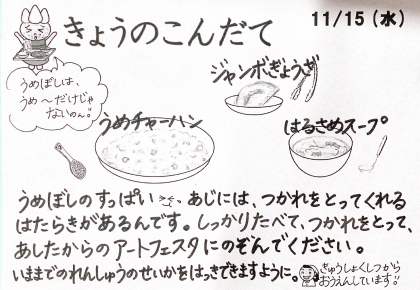 きょうのこんだて
11/15(水)
うめぼしは、
うめ〜だけじゃ
ないのん!
ジャンボぎょうざ
うめチャーハン
はるさめスープ
うめぼしのすっぱいあじには、つかれをとってくれる
はたらきがあるんです。しっかりたべて、つかれをとって、
あしたからのアートフェスタにのぞんでください。
いままでのれんしゅうのせいかをはっきできますように。
きゅうしょくしつから
おうえんしています!!